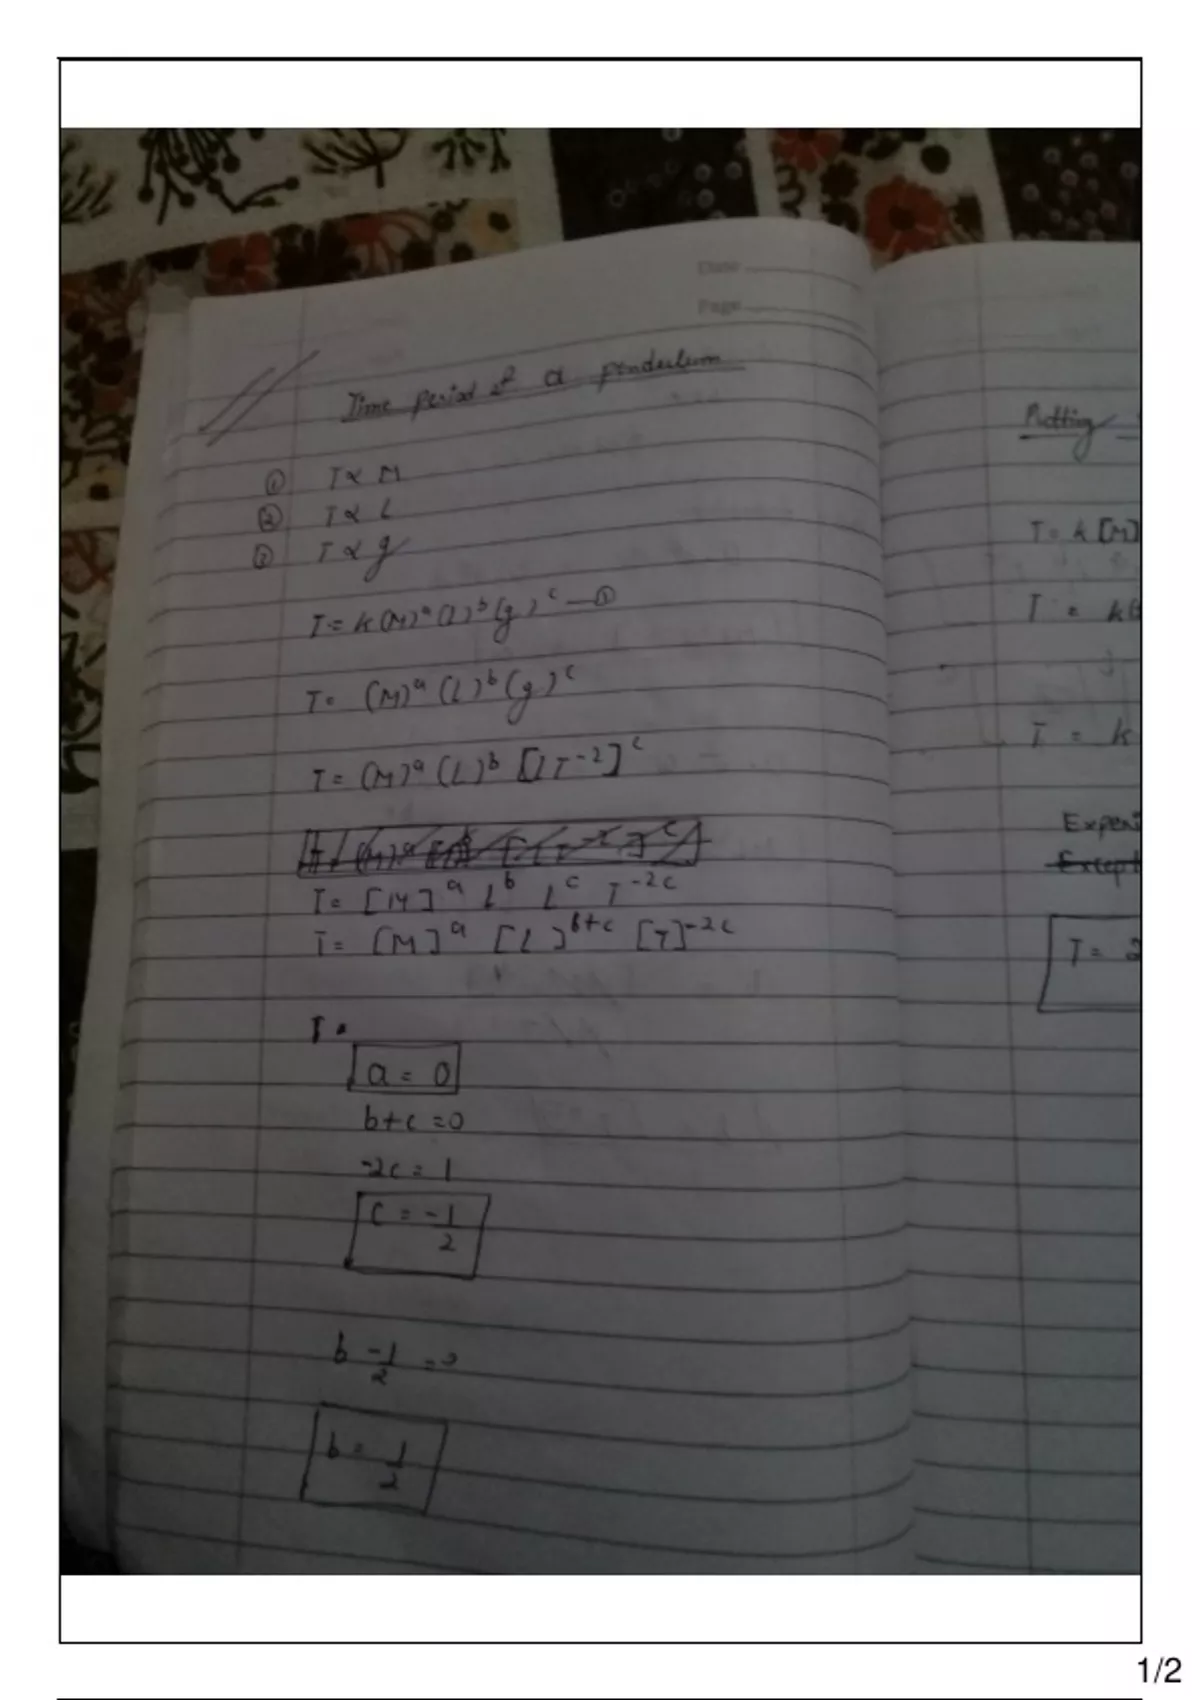 Date
Page
Time period of a pendulum
① T ∝ M
② T ∝ L
③ T ∝ g
T = k (M)ᵃ (L)ᵇ (g)ᶜ — ①
T = (M)ᵃ (L)ᵇ (g)ᶜ
T = (M)ᵃ (L)ᵇ [LT⁻²]ᶜ
T = [M]ᵃ Lᵇ Lᶜ T⁻²ᶜ
T = [M]ᵃ [L]ᵇ⁺ᶜ [T]⁻²ᶜ
T =
a = 0
b+c = 0
-2c = 1
c = -1/2
b -1/2 = 0
b = 1/2
Putting
T = k [M]
T = k
T = k
Experi
Except
T = 2
1/2